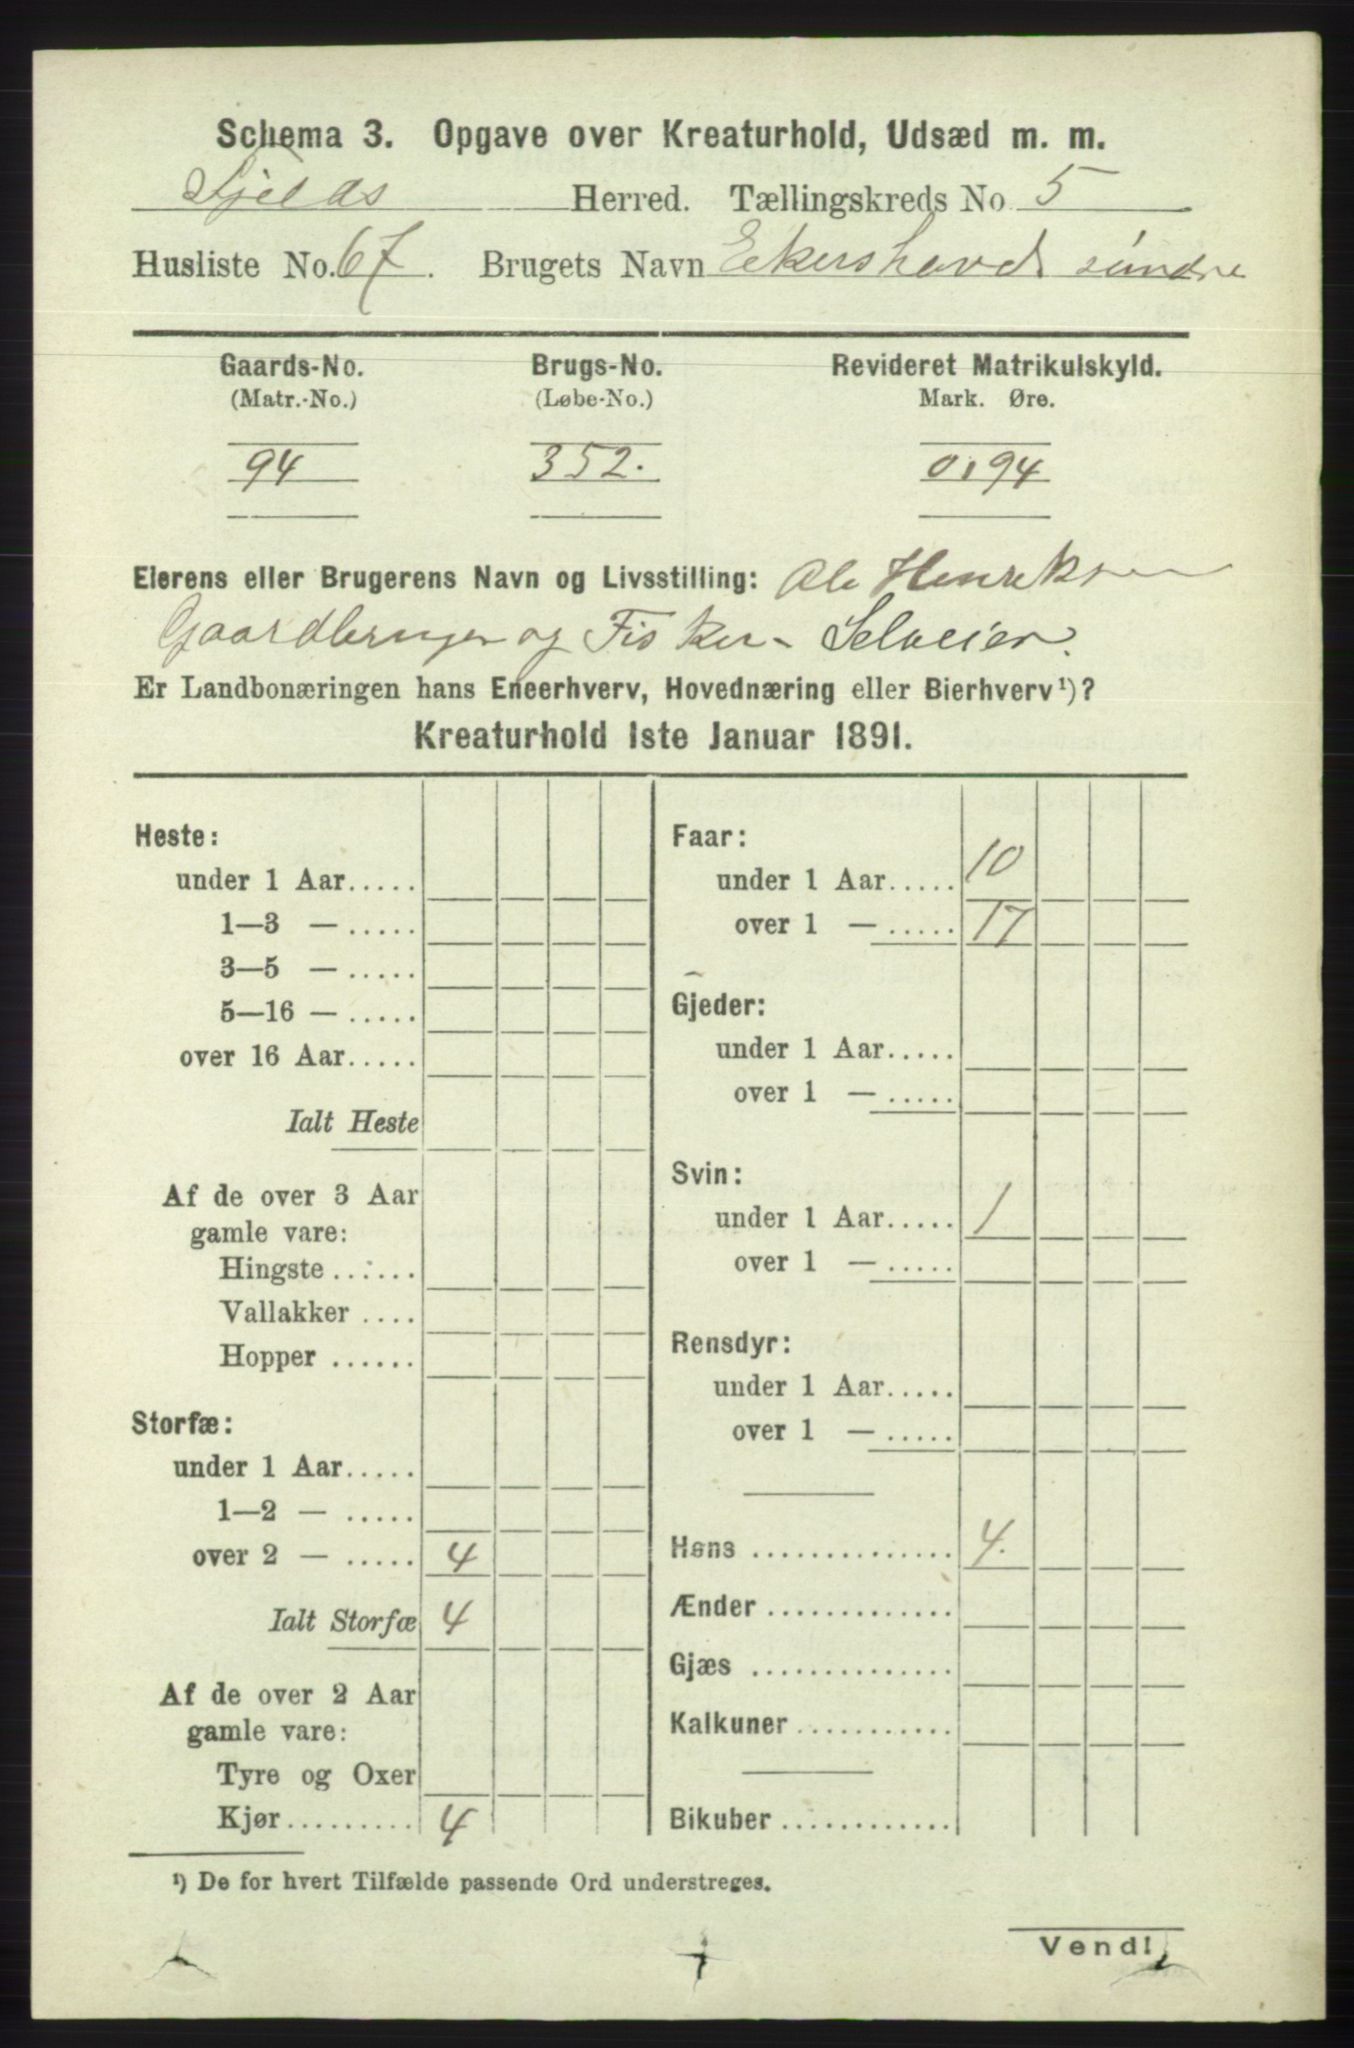 Schema 3. Opgave over Kreaturhold, Udsæd m. m.
Fjelds Herred. Tællingskreds No 5
Husliste No. 67. Brugets Navn Ekershovd søndre
Gaards-No. Brugs-No. Revideret Matrikulskyld.
(Matr.-No.) (Løbe-No.) Mark. Øre.
94 352. 0,94
Eierens eller Brugerens Navn og Livsstilling: Ole Henriksen
Gaardbruger og Fisker - Selveier.
Er Landbonæringen hans Eneerhverv, Hovednæring eller Bierhverv¹)?
Kreaturhold 1ste Januar 1891.
Heste:
under 1 Aar.....
1—3 — .....
3—5 — .....
5—16 — .....
over 16 Aar.....
Ialt Heste
Af de over 3 Aar
gamle vare:
Hingste ......
Vallakker ....
Hopper ......
Storfæ:
under 1 Aar.....
1—2 — .....
over 2 — ..... 4
Ialt Storfæ 4
Af de over 2 Aar
gamle vare:
Tyre og Oxer
Kjør.......... 4
Faar:
under 1 Aar..... 10
over 1 — ..... 17
Gjeder:
under 1 Aar.....
over 1 — .....
Svin:
under 1 Aar..... 1
over 1 — .....
Rensdyr:
under 1 Aar.....
over 1 — .....
Høns .............. 4.
Ænder .............
Gjæs ..............
Kalkuner ...........
Bikuber ............
¹) De for hvert Tilfælde passende Ord understreges.
Vend!